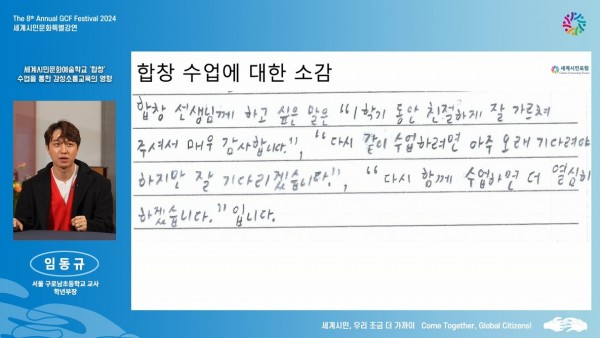 The 8th Annual GCF Festival 2024
세계시민문화특별강연
세계시민문화예술학교 '합창'
수업을 통한 감성소통교육의 영향
임동규
서울 구로남초등학교 교사
학년부장
합창 수업에 대한 소감
세계시민포럼
합창 선생님께 하고 싶은 말은 "1학기 동안 친절하게 잘 가르쳐
주셔서 매우 감사합니다.", "다시 같이 수업하려면 아주 오래 기다려야
하지만 잘 기다리겠습니다.", "다시 함께 수업하면 더 열심히
하겠습니다." 입니다.
세계시민, 우리 조금 더 가까이 Come Together, Global Citizens!